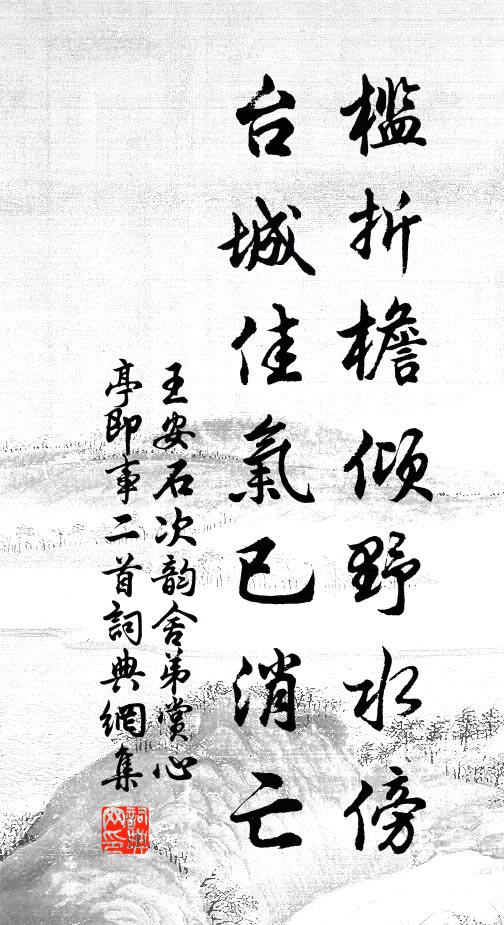 槛折檐倾野水傍
台城佳氣已消亡
王安石次韵舍弟赏心
亭即事二首詞典網集